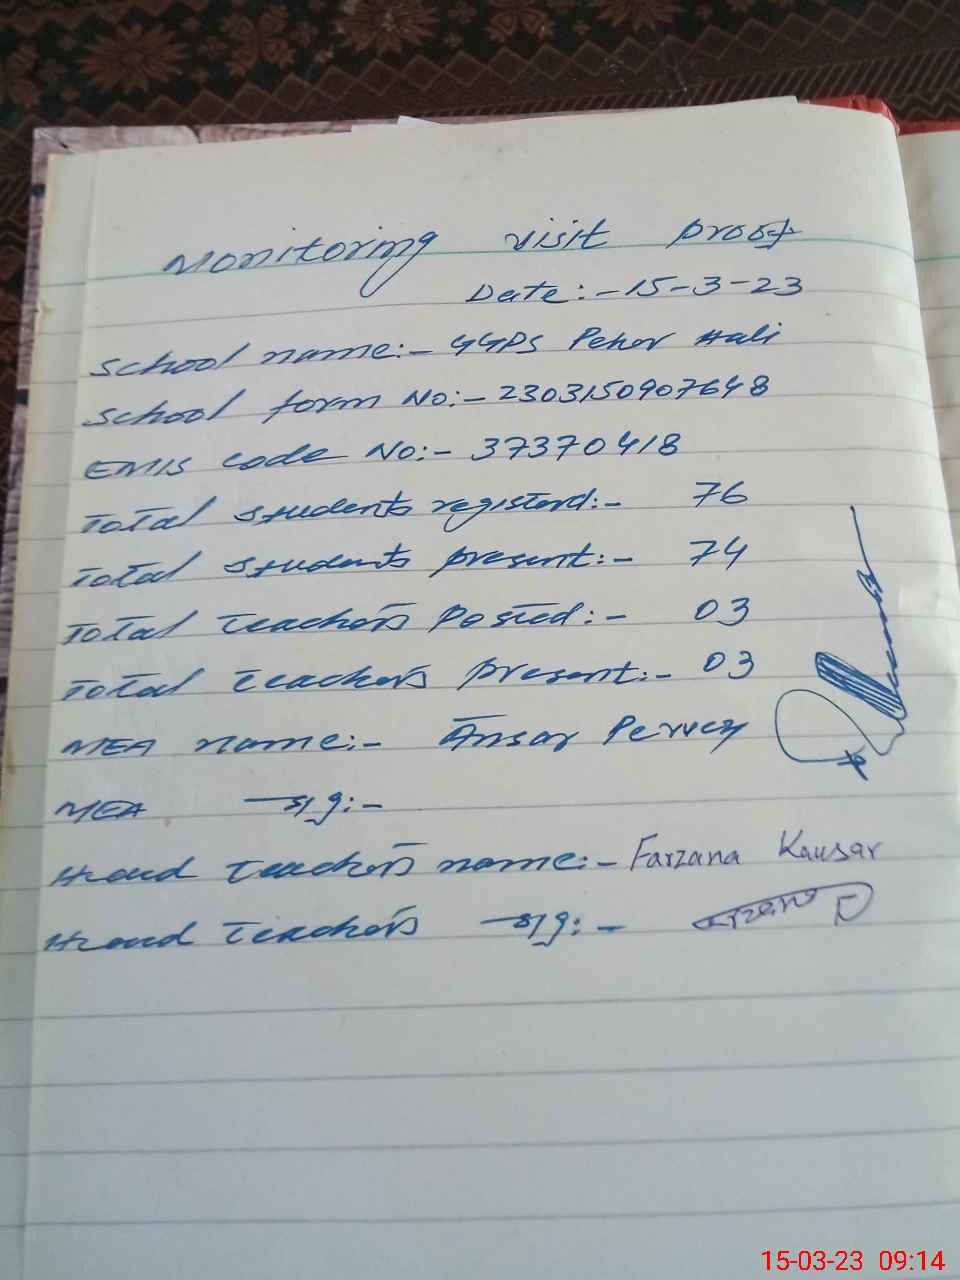 Monitoring visit proof
Date:-15-3-23
School name:- GGPS Pehor Hali
School form No:- 2303150907648
EMIS code No:- 37370418
Total students registerd:- 76
Total students present:- 74
Total teachers Posted:- 03
Total teachers present:- 03
MEA name:- Ansar Pervez
MEA sig:-
Head teachers name:- Farzana Kausar
Head teachers sig:-
15-03-23 09:14